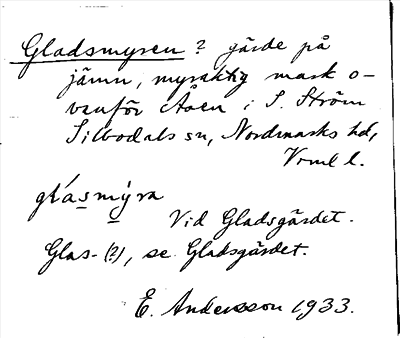 Gladsmyren? gärde på
jämn, myraktig mark o-
vanför Åoen i S. Ström
Silbodals sn, Nordmarks hd,
Vrml l.
glásmýra
Vid Gladsgärdet.
Glas- (?), se Gladsgärdet.
E. Andersson 1933.